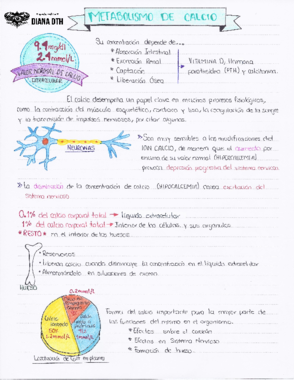 DIANA DTH
METABOLISMO DE CALCIO
9.4 mg/dl
2.4 mmol/L
VALOR NORMAL DE CALCIO
Su concentración depende de...
* Absorción Intestinal
* Excreción Renal
* Captación
* Liberación Ósea
VITAMINA D, Hormona
paratiroidea (PTH) y calcitonina.
El calcio desempeña un papel clave en muchos procesos fisiológicos,
como la contracción del músculo esquelético, cardiaco y liso, la coagulación de la sangre
y la transmisión de impulsos nerviosos, por citar algunos.
NEURONAS
Son muy sensibles a las modificaciones del
ION CALCIO, de manera que el aumento por
encima de su valor normal (HIPERCALCEMIA)
provoca depresión progresiva del sistema nervioso
La disminución de la concentración de calcio (HIPOCALCEMIA) causa excitación del
sistema nervioso
0.1% del calcio corporal total → Líquido extracelular
1% del calcio corporal total → Interior de las células y sus organulos
*RESTO* en el interior de los huesos
HUESO
* Reservorios
* Liberando calcio cuando disminuye su concentración en el líquido extracelular
* Almacenándolo en situaciones de exceso
Forma del calcio importante para la mayor parte de
las funciones del mismo en el organismo.
* Efectos sobre el corazón
* Efectos en Sistema Nervioso
* Formación de hueso